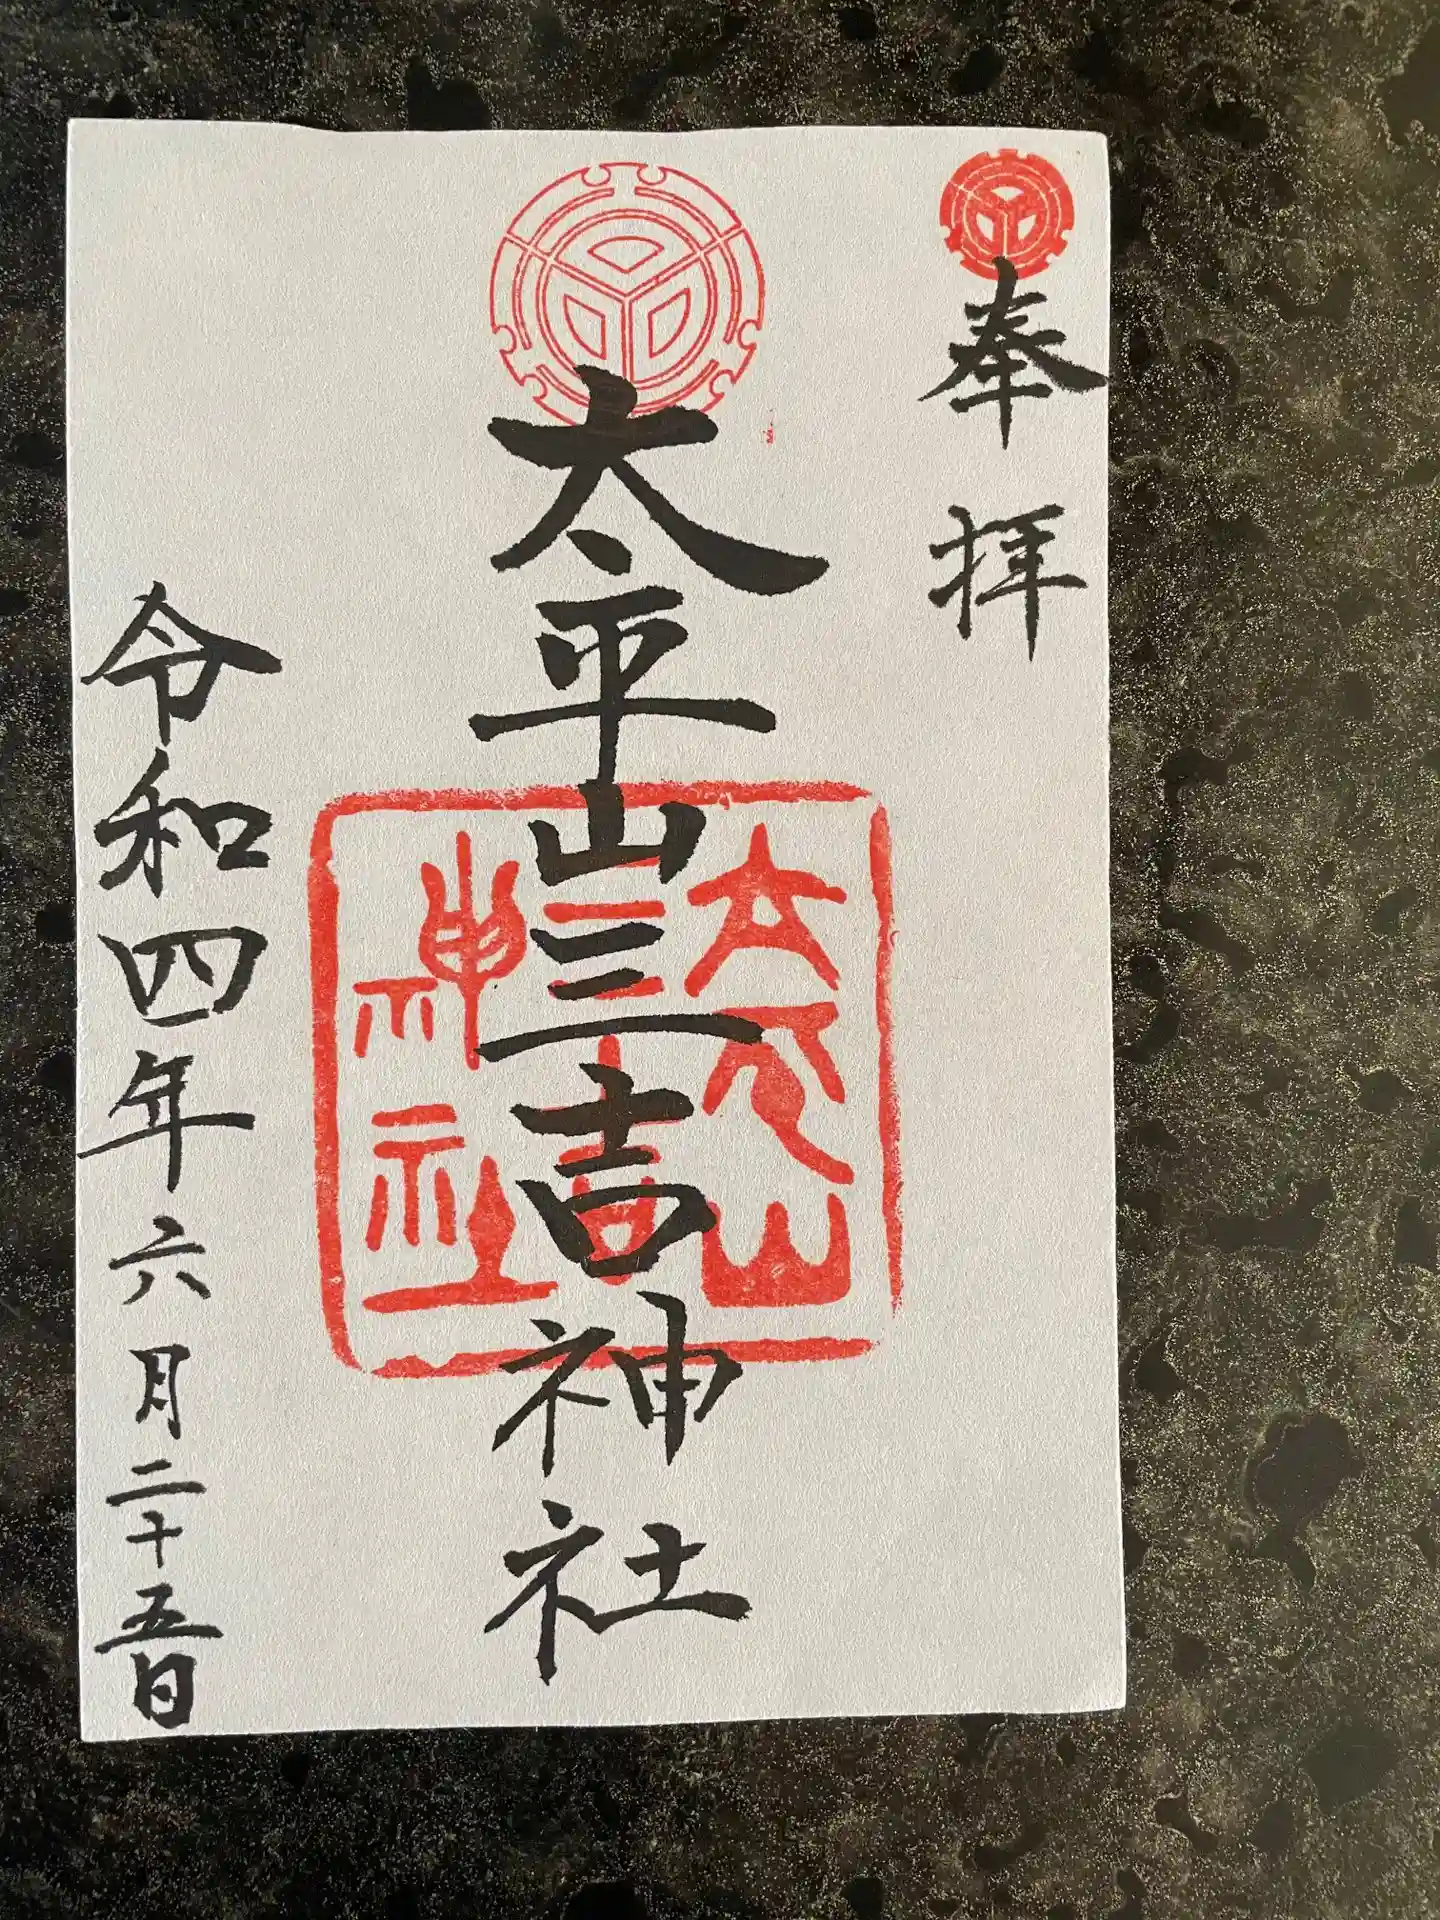 奉拝
太平山三吉神社
太平山
三吉
神社
令和四年六月二十五日